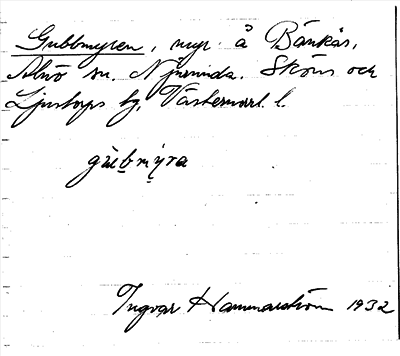 Gubbmyren, myr å Bänkås,
Alnö sn. Njurunda, Sköns och
Ljustorps tg, Västernorrl. l.
gùbmy̆ra
Ingvar Hammarström 1932